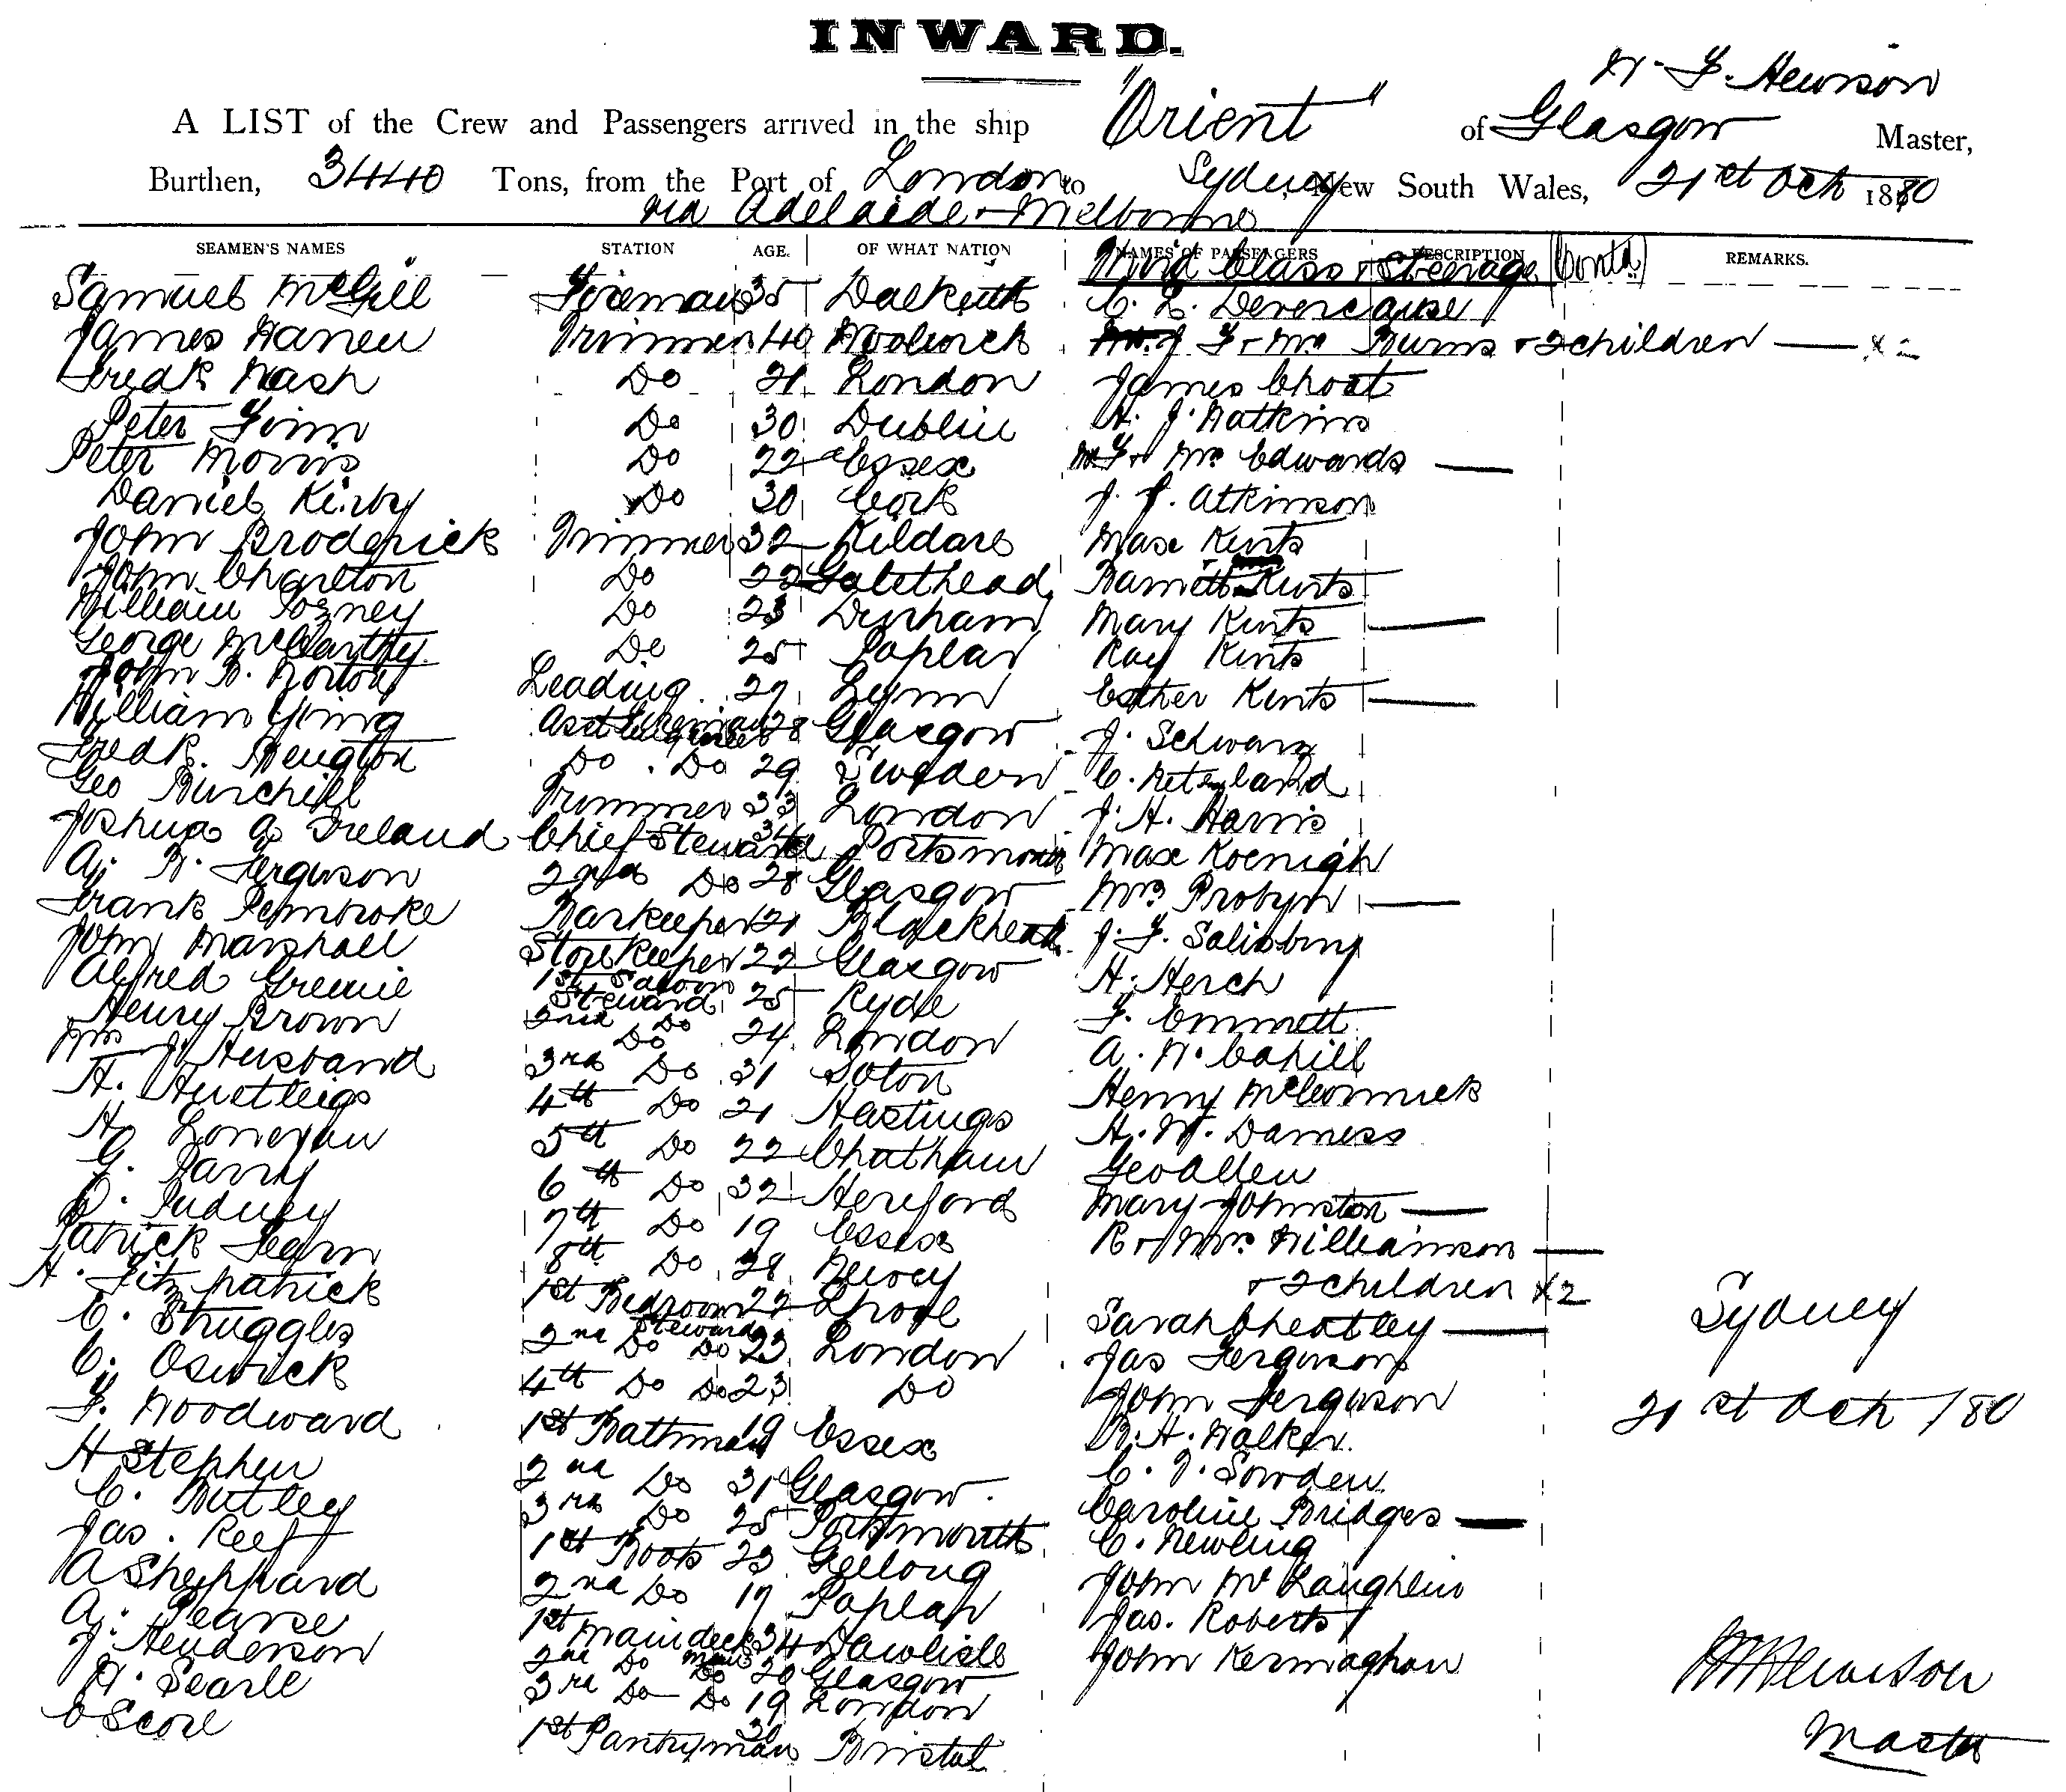 INWARD.
W. F. Hewison
A LIST of the Crew and Passengers arrived in the ship "Orient" of Glasgow Master,
Burthen, 3440 Tons, from the Port of London to Sydney, New South Wales, 21st Oct 1880
via Adelaide & Melbourne
SEAMEN'S NAMES STATION AGE. OF WHAT NATION NAMES OF PASSENGERS DESCRIPTION REMARKS.
Third Class & Steerage (Contd)
Samuel McGill Fireman 35 Dalkeith C. L.
James Trimmer 40 Woolwich F & Mrs Burns & 2 children
Fredk Nash Do 21 London James Choat
Peter Do 30 Dublin H. J. Watkins
Peter Morris Do 22 Essex F & Mrs Edwards
Daniel Kirby Do 30 Cork J. J. Atkinson
John Broderick Trimmer 32 Kildare Max Kurts
John Charlton Do 22 Gateshead Barnett Kurts
William Do 23 Durham Mary Kurts
George McCarthy Do 25 Poplar Ray Kurts
John B. Norton Leading 27 Lynn Esther Kurts
William Asst 28 Glasgow J. Schwarz
Fredk. Do. Do 29 Sweden C.
Geo Burchill Trimmer 33 London J. H. Harris
Joshua A Ireland Chief Steward 34 Portsmouth Max Koenigh
A. W. Ferguson 2nd Do 28 Glasgow Mrs Probyn
Frank Pembroke Barkeeper 21 Blackheath J. F. Salisbury
John Marshall Storekeeper 22 Glasgow H. Herch
Alfred 1st Saloon Steward 25 Ryde F. Emmett
Henry Brown 2nd Do Do 24 London A. W. Cahill
Wm J. Husband 3rd Do 31 Soton Henry McCormick
H. 4th Do 21 Hastings H. W. Darness
H. Lonergan 5th Do 22 Chatham Geo Allen
G. Parry 6th Do 32 Hereford Mary Johnston
D. Pudney 7th Do 19 Essex R & Mrs Williamson
Patrick Fearn 8th Do 28 Newry & 2 children X2
H. Fitzpatrick 1st Bedroom Steward 22 Sarah Cheatley
C. Struggles 2nd Do Do 23 London Jas Ferguson
C. Oswick 4th Do Do 23 Do John Ferguson
F. Woodward 1st Bathman 19 Essex R. H. Walker
H Stephen 2nd Do 31 Glasgow C. J. Sowden
C. Nutley 3rd Do 25 Portsmouth Caroline Bridges
Jas. Reef 1st Boots 23 Geelong C. Newling
A Sheppard 2nd Do 17 Poplar John McLaughlin
A. Pearse 1st Maindeck 34 Dawlish Jas. Roberts
J. Henderson 2nd Do Do 20 Glasgow John Kernaghan
H. Searle 3rd Do Do 19 London
C Score 1st Pantryman 30 Bristol
Sydney
21st Oct /80
W F Hewison
Master